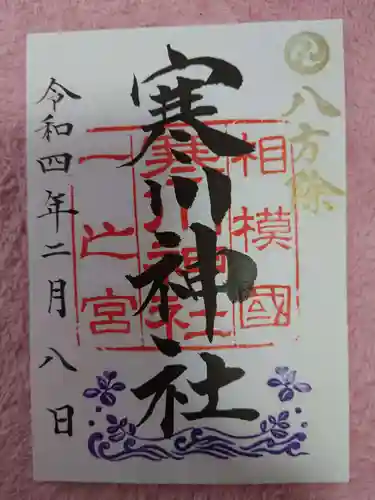 八方除
相模國
寒川神社
一之宮
寒川神社
令和四年二月八日